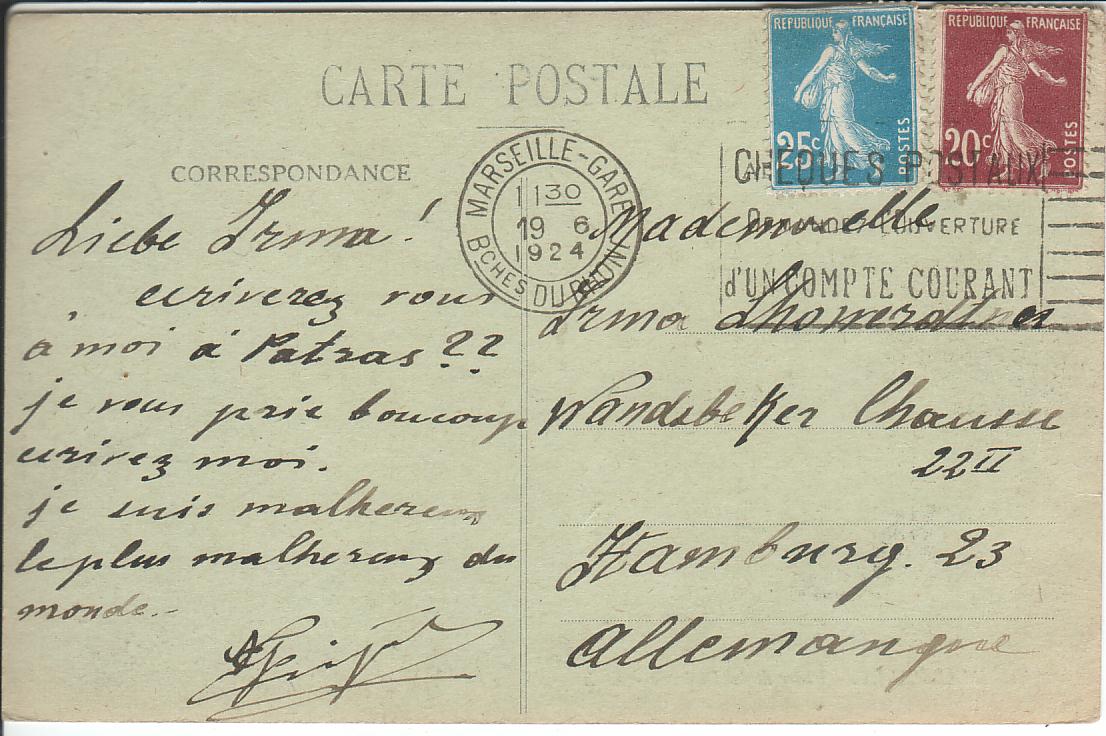 CARTE POSTALE
CORRESPONDANCE
RÉPUBLIQUE FRANÇAISE
25c
POSTES
RÉPUBLIQUE FRANÇAISE
20c
POSTES
MARSEILLE-GARE
11 30
19 6
1924
BCHES DU RHONE
CHÈQUES POSTAUX
DEMANDEZ L'OUVERTURE
d'UN COMPTE COURANT
Liebe Irma!
ecriverez vous
à moi à Patras??
je vous prie boucoup
ecrivez moi.
je suis malhereux
le plus malhereux du
monde.-
Mademoiselle
Irma
Wandsbeker Chausse
22II
Hamburg. 23
Allemangne